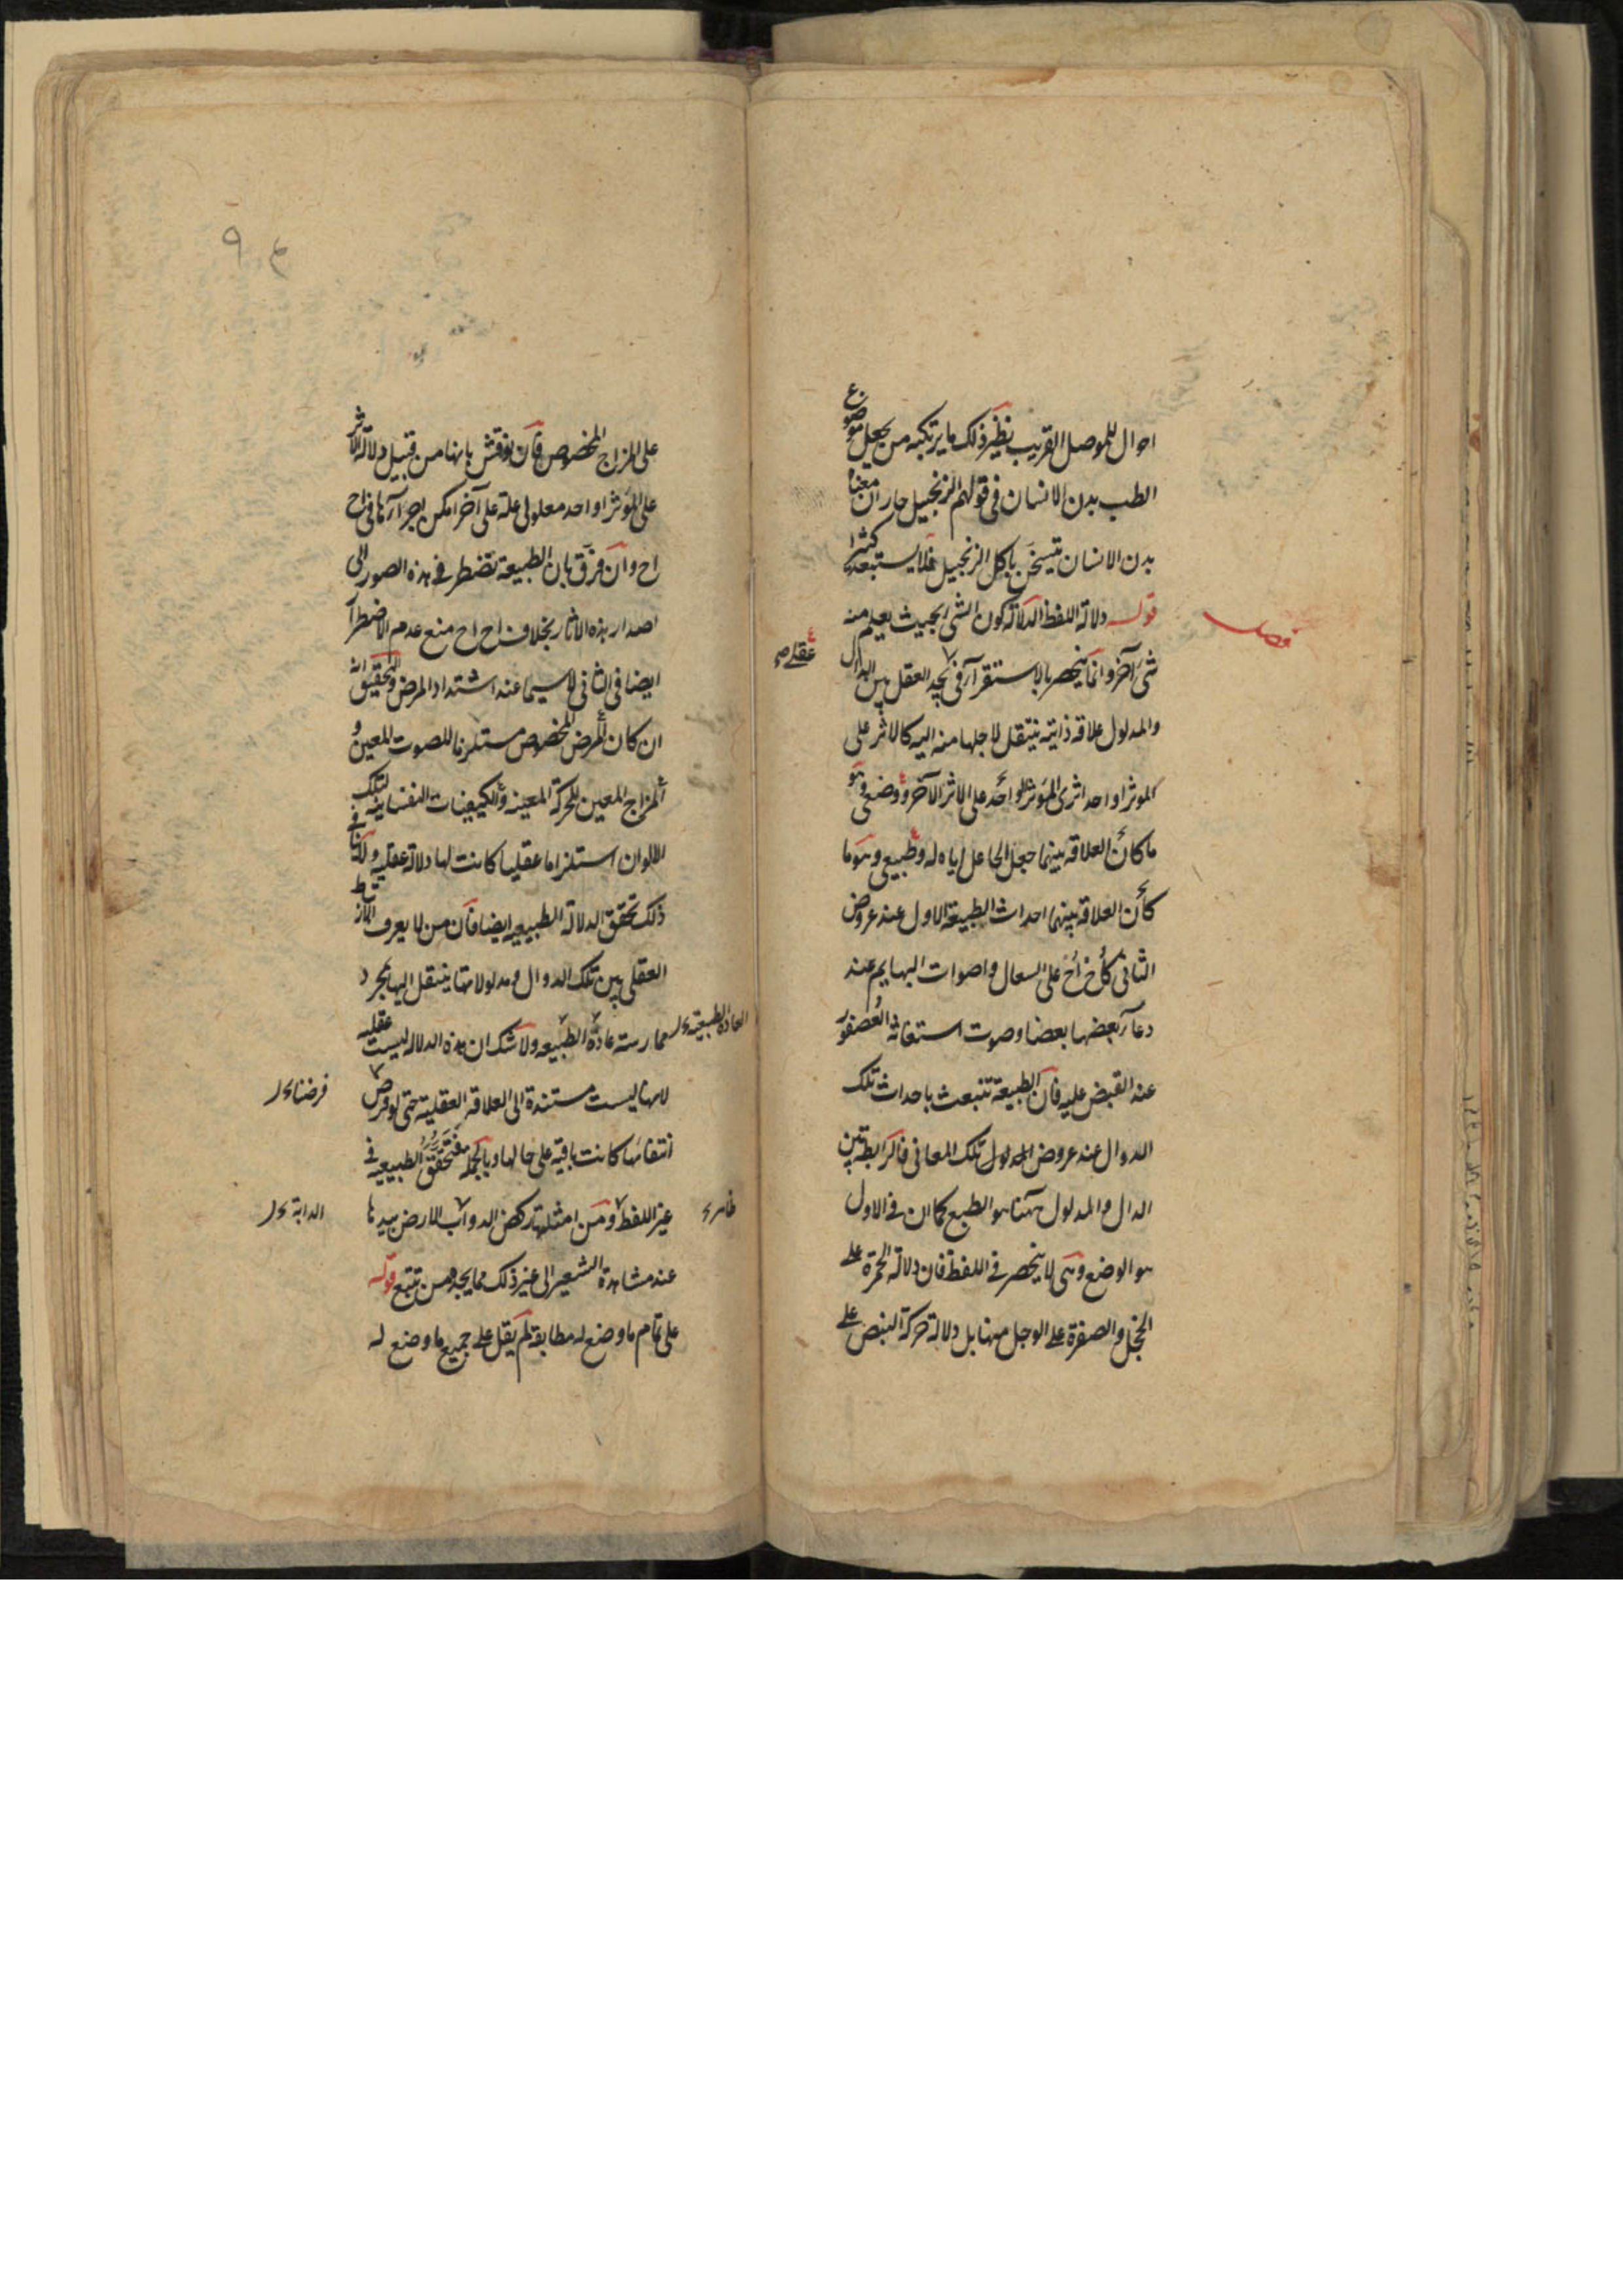 احوال للموصل القريب نظير ذلك ما يرتكبه من يجعل موضوع
الطب بدن الانسان فى قولهم الزنجبيل حار ان معناه
بدن الانسان يتسخن باكل الزنجبيل فلا يستبعد كثيرا
فصل
قوله دلالة اللفظ الدلالة كون الشى بحيث يعلم منه
شى آخر وانما ينحصر بالاستقرآء فى يجد العقل بين الدال
عقلى
والمدلول علاقة ذاتية ينتقل لاجلها منه اليه كالاثر على
الموثر او احد اثرى المؤثر الواحد على الاثر الآخر ووضعى وهو
ما كان العلاقة بينهما جعل الجاعل اياه له وطبيعى وهو ما
كان العلاقة بينهما احداث الطبيعة الاول عند عروض
الثانى كأخ أخ على السعال واصوات البهايم عند
دعآء بعضها بعضا وصوت استغاثة العصفور
عند القبض عليه فان الطبيعة تنبعث باحداث تلك
الدوال عند عروض المدلول تلك المعانى فالرابطة بين
الدال والمدلول ههنا هو الطبع كما ان فى الاول
هو الوضع وهى لا ينحصر فى اللفظ فان دلالة الحمرة على
الخجل والصفرة على الوجل منها بل دلالة حركة النبض على
٩
على المزاج المخصوص فان نوقش بانها من قبيل دلالة الاثر
على المؤثر او احد معلولى علة على آخر امكن اجرآءها فى اح
اح وان فرق بان الطبيعة تضطر فى هذه الصور الى
اصدار هذه الاثار بخلاف اح اح منع عدم الاضطرآر
ايضا فى الثانى لا سيما عند اشتداد المرض والتحقيق انه
ان كان المرض المخصوص مستلزما للصوت المعين و
المزاج المعين للحركة المعينة والكيفيات النفسانية لتلك
الالوان استلزاما عقليا كانت لها دلالة عقلية ولا ينافى
ذلك تحقق الدلالة الطبيعيه ايضا فان من لا يعرف الارتباط
العقلى بين تلك الدوال ومدلولاتها ينتقل اليها بمجرد
ممارسته عادة الطبيعه ولا شك ان هذه الدلالة ليست عقليه
العادة الطبيعية
لانها ليست مستندة الى العلاقة العقلية حتى لو فرض
فرضنا
انتفائها كانت باقية على حالها وبالجمله فتحقق الطبيعيه فى
غير اللفظ ومن امثلتها ركض الدوآب الارض بيدها
ظاهر
الدابة
عند مشاهدة الشعير الى غير ذلك مما يجده من تتبع قوله
على تمام ما وضع له مطابقة لم يقل على جميع ما وضع له